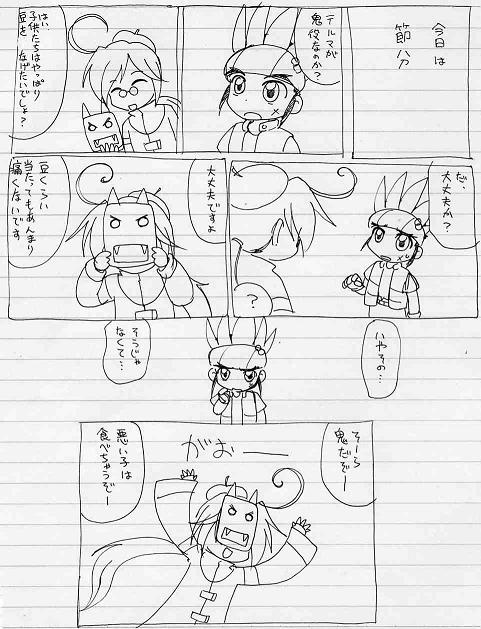 今日は
節分
テルマが
鬼役なのか?
はい、
子供たちはやっぱり
豆を 投げたいでしょ?
だ、
大丈夫か?
?
大丈夫ですよ
豆くらい
当たってもあんまり
痛くないです
いやその…
そうじゃ
なくて…
そーら
鬼だぞー
がおーー
悪い子は
食べちゃうぞー